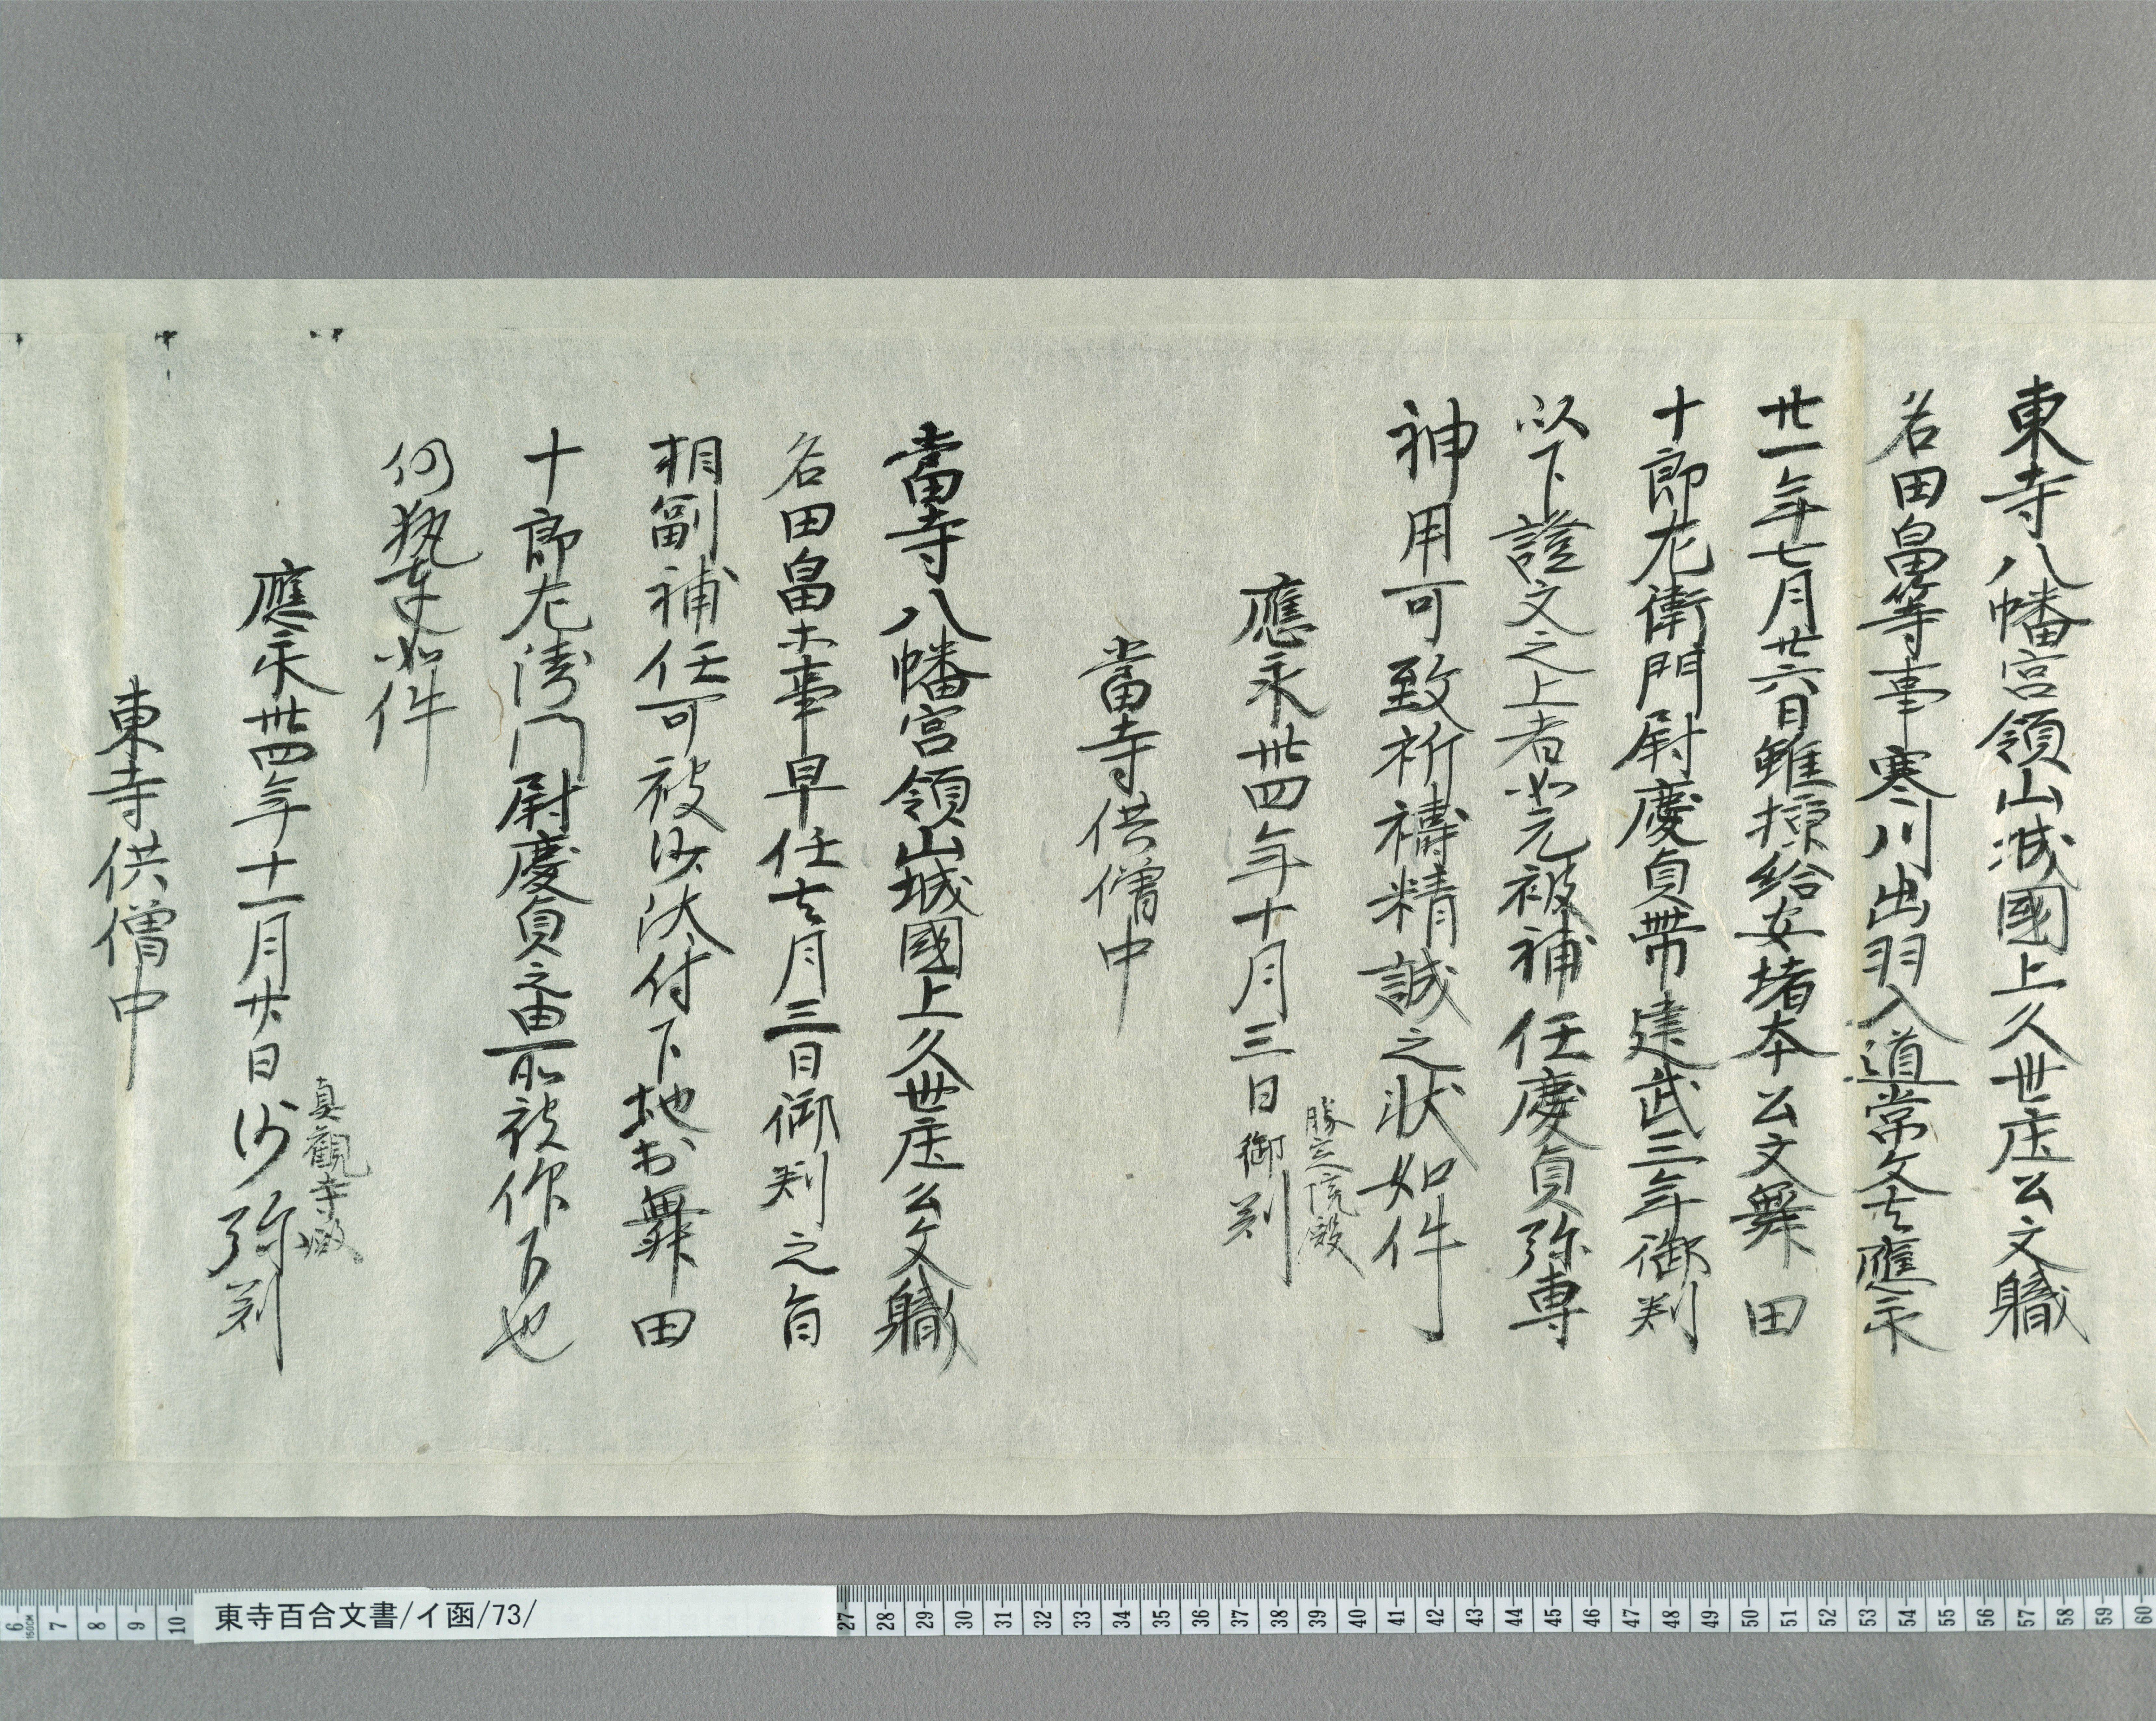 東寺八幡宮領山城國上久世庄公文職
名田畠等事寒川出羽入道常文去應永
廿一年七月廿六日雖掠給安堵本公文舞田
十郎左衛門尉慶貞帯建武三年御判
以下證文之上者如元被補任慶貞弥専
神用可致祈禱精誠之状如件
勝定院殿
應永廿四年十月三日御判
當寺供僧中
當寺八幡宮領山城國上久世庄公文職
名田畠等事早任去月三日御判之旨
相副補任可被沙汰付下地於舞田
十郎左衛門尉慶貞之由所被仰下也
仍執達如件
真観寺殿
應永廿四年十一月廿八日沙弥判
東寺供僧中
東寺百合文書/イ函/73/
6 7 8 9 10 27 28 29 30 31 32 33 34 35 36 37 38 39 40 41 42 43 44 45 46 47 48 49 50 51 52 53 54 55 56 57 58 59 60